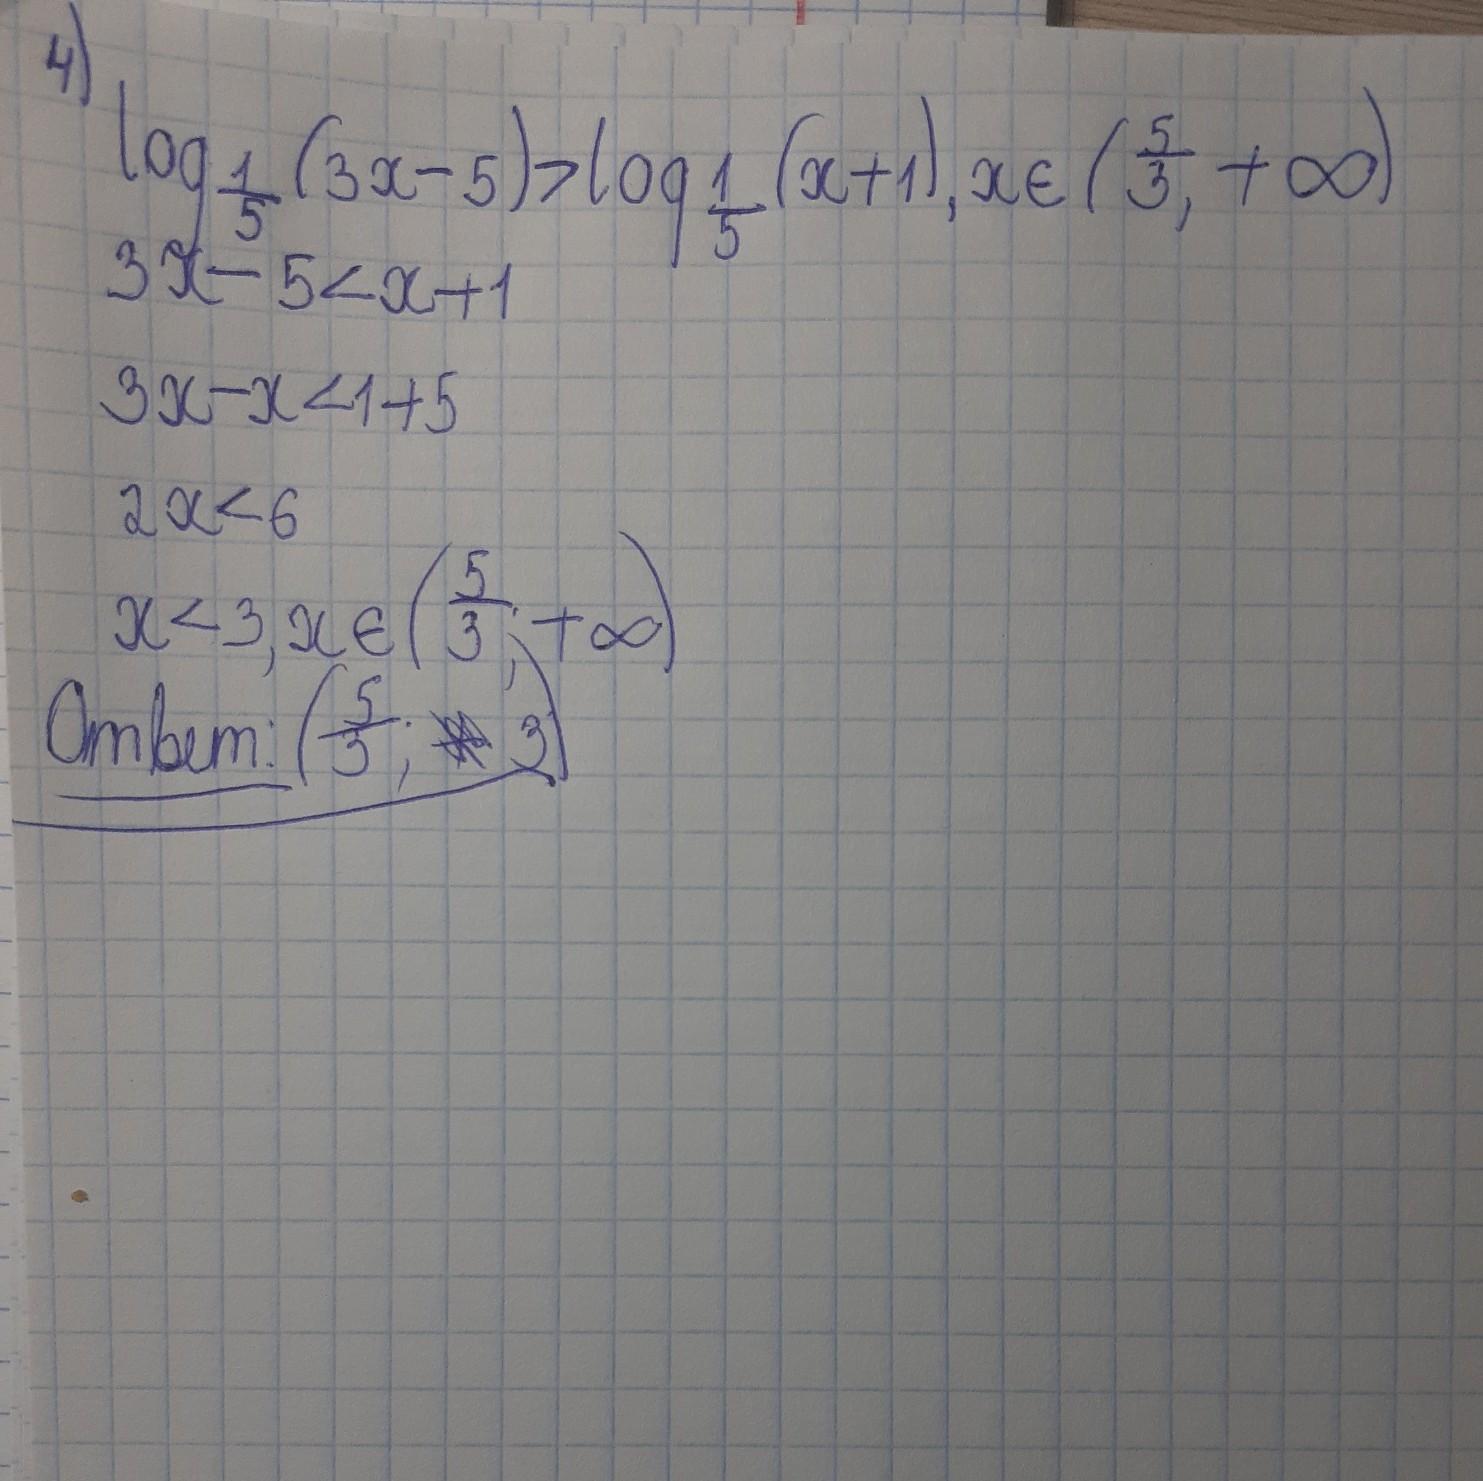 4)
log 1/5 (3x-5)>log 1/5 (x+1), x∈(5/3; +∞)
3x-5<x+1
3x-x<1+5
2x<6
x<3, x∈(5/3; +∞)
Ответ: (5/3; 3)